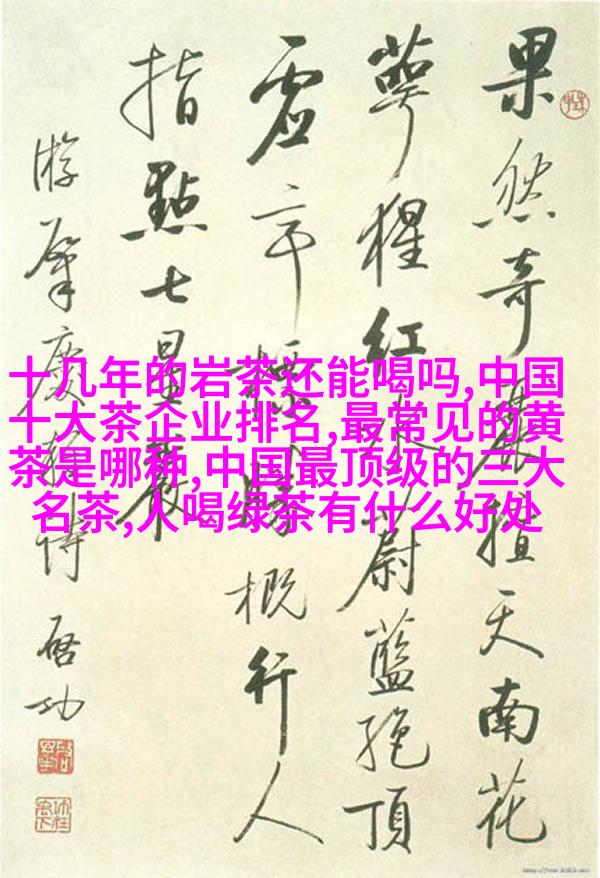 果然奇麗擅天南花
萼猩紅水蔚藍絕頂
虛亭標勝概行人
指點七星巖
游肇慶
啟功
十几年的岩茶还能喝吗,中国
十大茶企业排名,最常见的黄
茶是哪种,中国最顶级的三大
名茶,人喝绿茶有什么好处